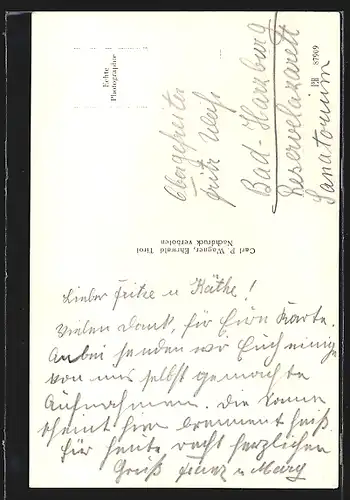 Lieber Fritze u Käthe!
Vielen Dank, für Eure Karte.
Anbei senden wir Euch einige
von uns selbst gemachte
Aufnahmen. Die Sonne
scheint hier brennend heiß.
Für heute recht herzlichen
Gruß Franz u Mary
Carl P. Wagner, Ehrwald Tirol
Nachdruck verboten
Echte
Photographie
Obergefreiter
Fritz Weiß
Bad-Harzburg
Reservelazarett
Sanatorium
PE 87909